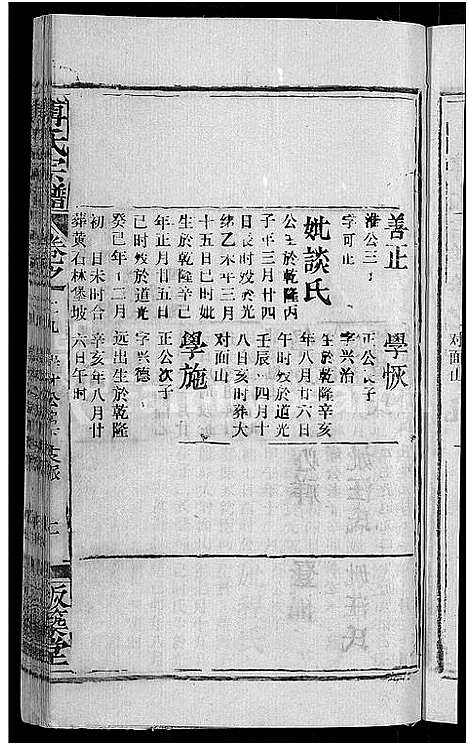 善止
淮公三子
字可止
妣談氏
公生於乾隆丙
子年三月廿四
日辰時歿於光
緒乙未年三月
十五日巳時妣
生於乾隆辛巳
年正月廿五日
巳時歿於道光
癸巳年十二月
初 日未時合
葬黄石林堡坡
學恢
正公長子
字興治
生於乾隆辛亥
年八月廿六日
午時歿於道光
壬辰年四月十
八日亥時葬大
对面山
學施
正公次子
字興德
远出生於乾隆
辛亥年八月廿
六日午时
对面山
傅氏宗譜
卷之
版築堂